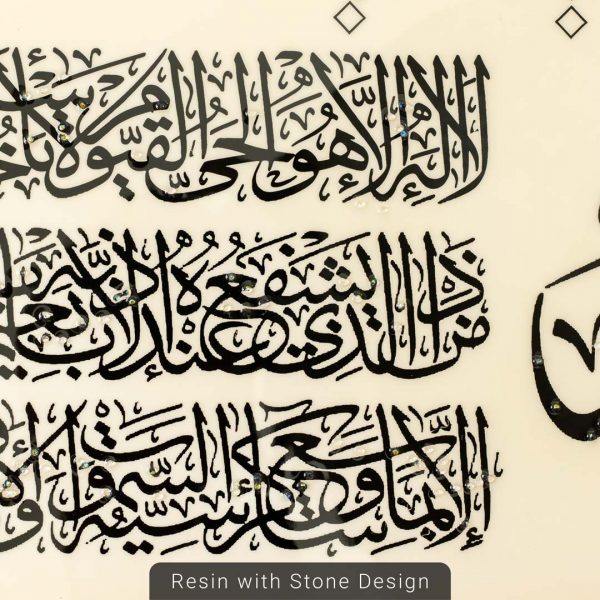 لا إله إلا هو الحي القيوم لا تأخ
من ذا الذي يشفع عنده إلا بإذنه يع
إلا بما شاء وسع كرسيه السموات والأر
Resin with Stone Design